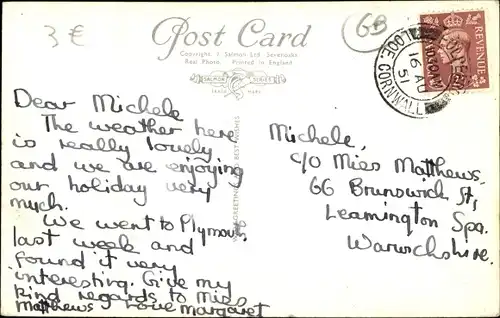 3€
Post Card
6B
Copyright J. Salmon Ltd Sevenoaks
Real Photo. Printed in England
SALMON SERIES
TRADE MARK
REVENUE
LOOE CORNWALL
16 AU
51
WITH GREETINGS AND BEST WISHES
Dear Michele
The weather here
is really lovely
and we are enjoying
our holiday very
much.
We went to Plymouth
last week and
found it very
interesting. Give my
kind regards to Miss
Matthews Love Margaret
Michele,
c/o Miss Matthews,
66 Brunswick St,
Leamington Spa.
Warwickshire.